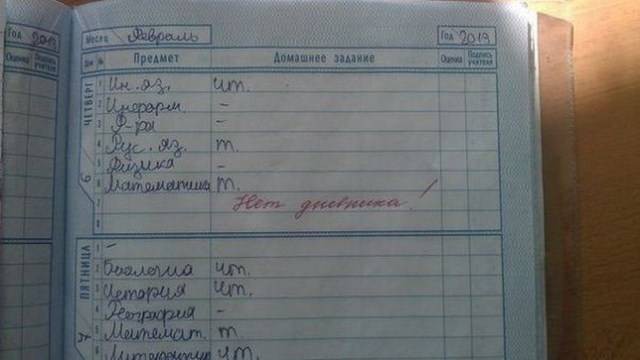 Год 2019
Оценка Подпись учителя
Месяц Февраль Год 2019
Дни № Предмет Домашнее задание Оценка Подпись учителя
ЧЕТВЕРГ
1 Ин. яз. чт.
2 Информ. –
3 Ф-ра –
4 Рус. яз. т.
5 Физика –
6 Математика т.
7 Нет дневника!
8
ПЯТНИЦА
1 –
2 Биология чт.
3 История чт.
4 География –
5 Математ. т
6 Литература чт.